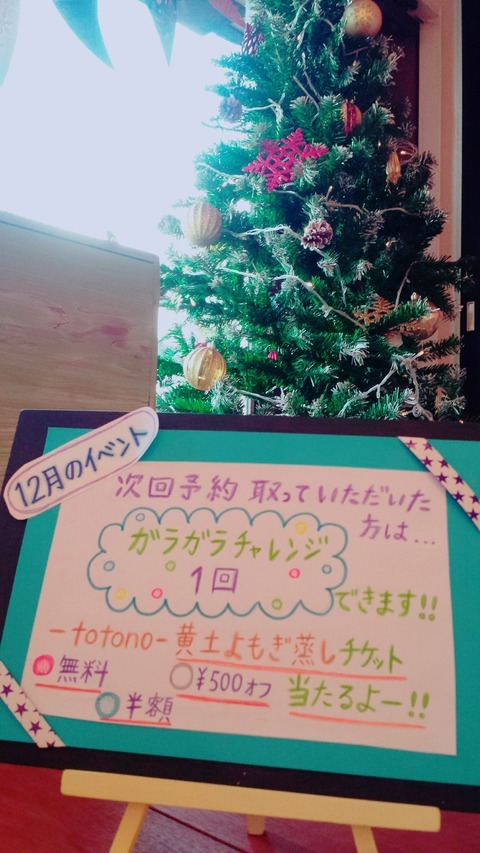 12月のイベント
次回予約 取っていただいた
方は...
ガラガラチャレンジ
1回
できます!!
-totono-黄土よもぎ蒸しチケット
無料 ¥500オフ 当たるよー!!
半額